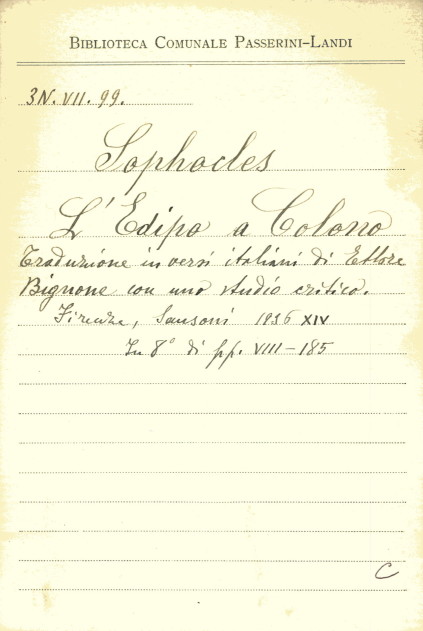 BIBLIOTECA COMUNALE PASSERINI-LANDI
3N. VII. 99.
Sophocles
L'Edipo a Colono
Traduzione in versi italiani di Ettore
Bignone con uno studio critico.
Firenze, Sansoni 1936 XIV
In 8° di pp. VIII-185
C